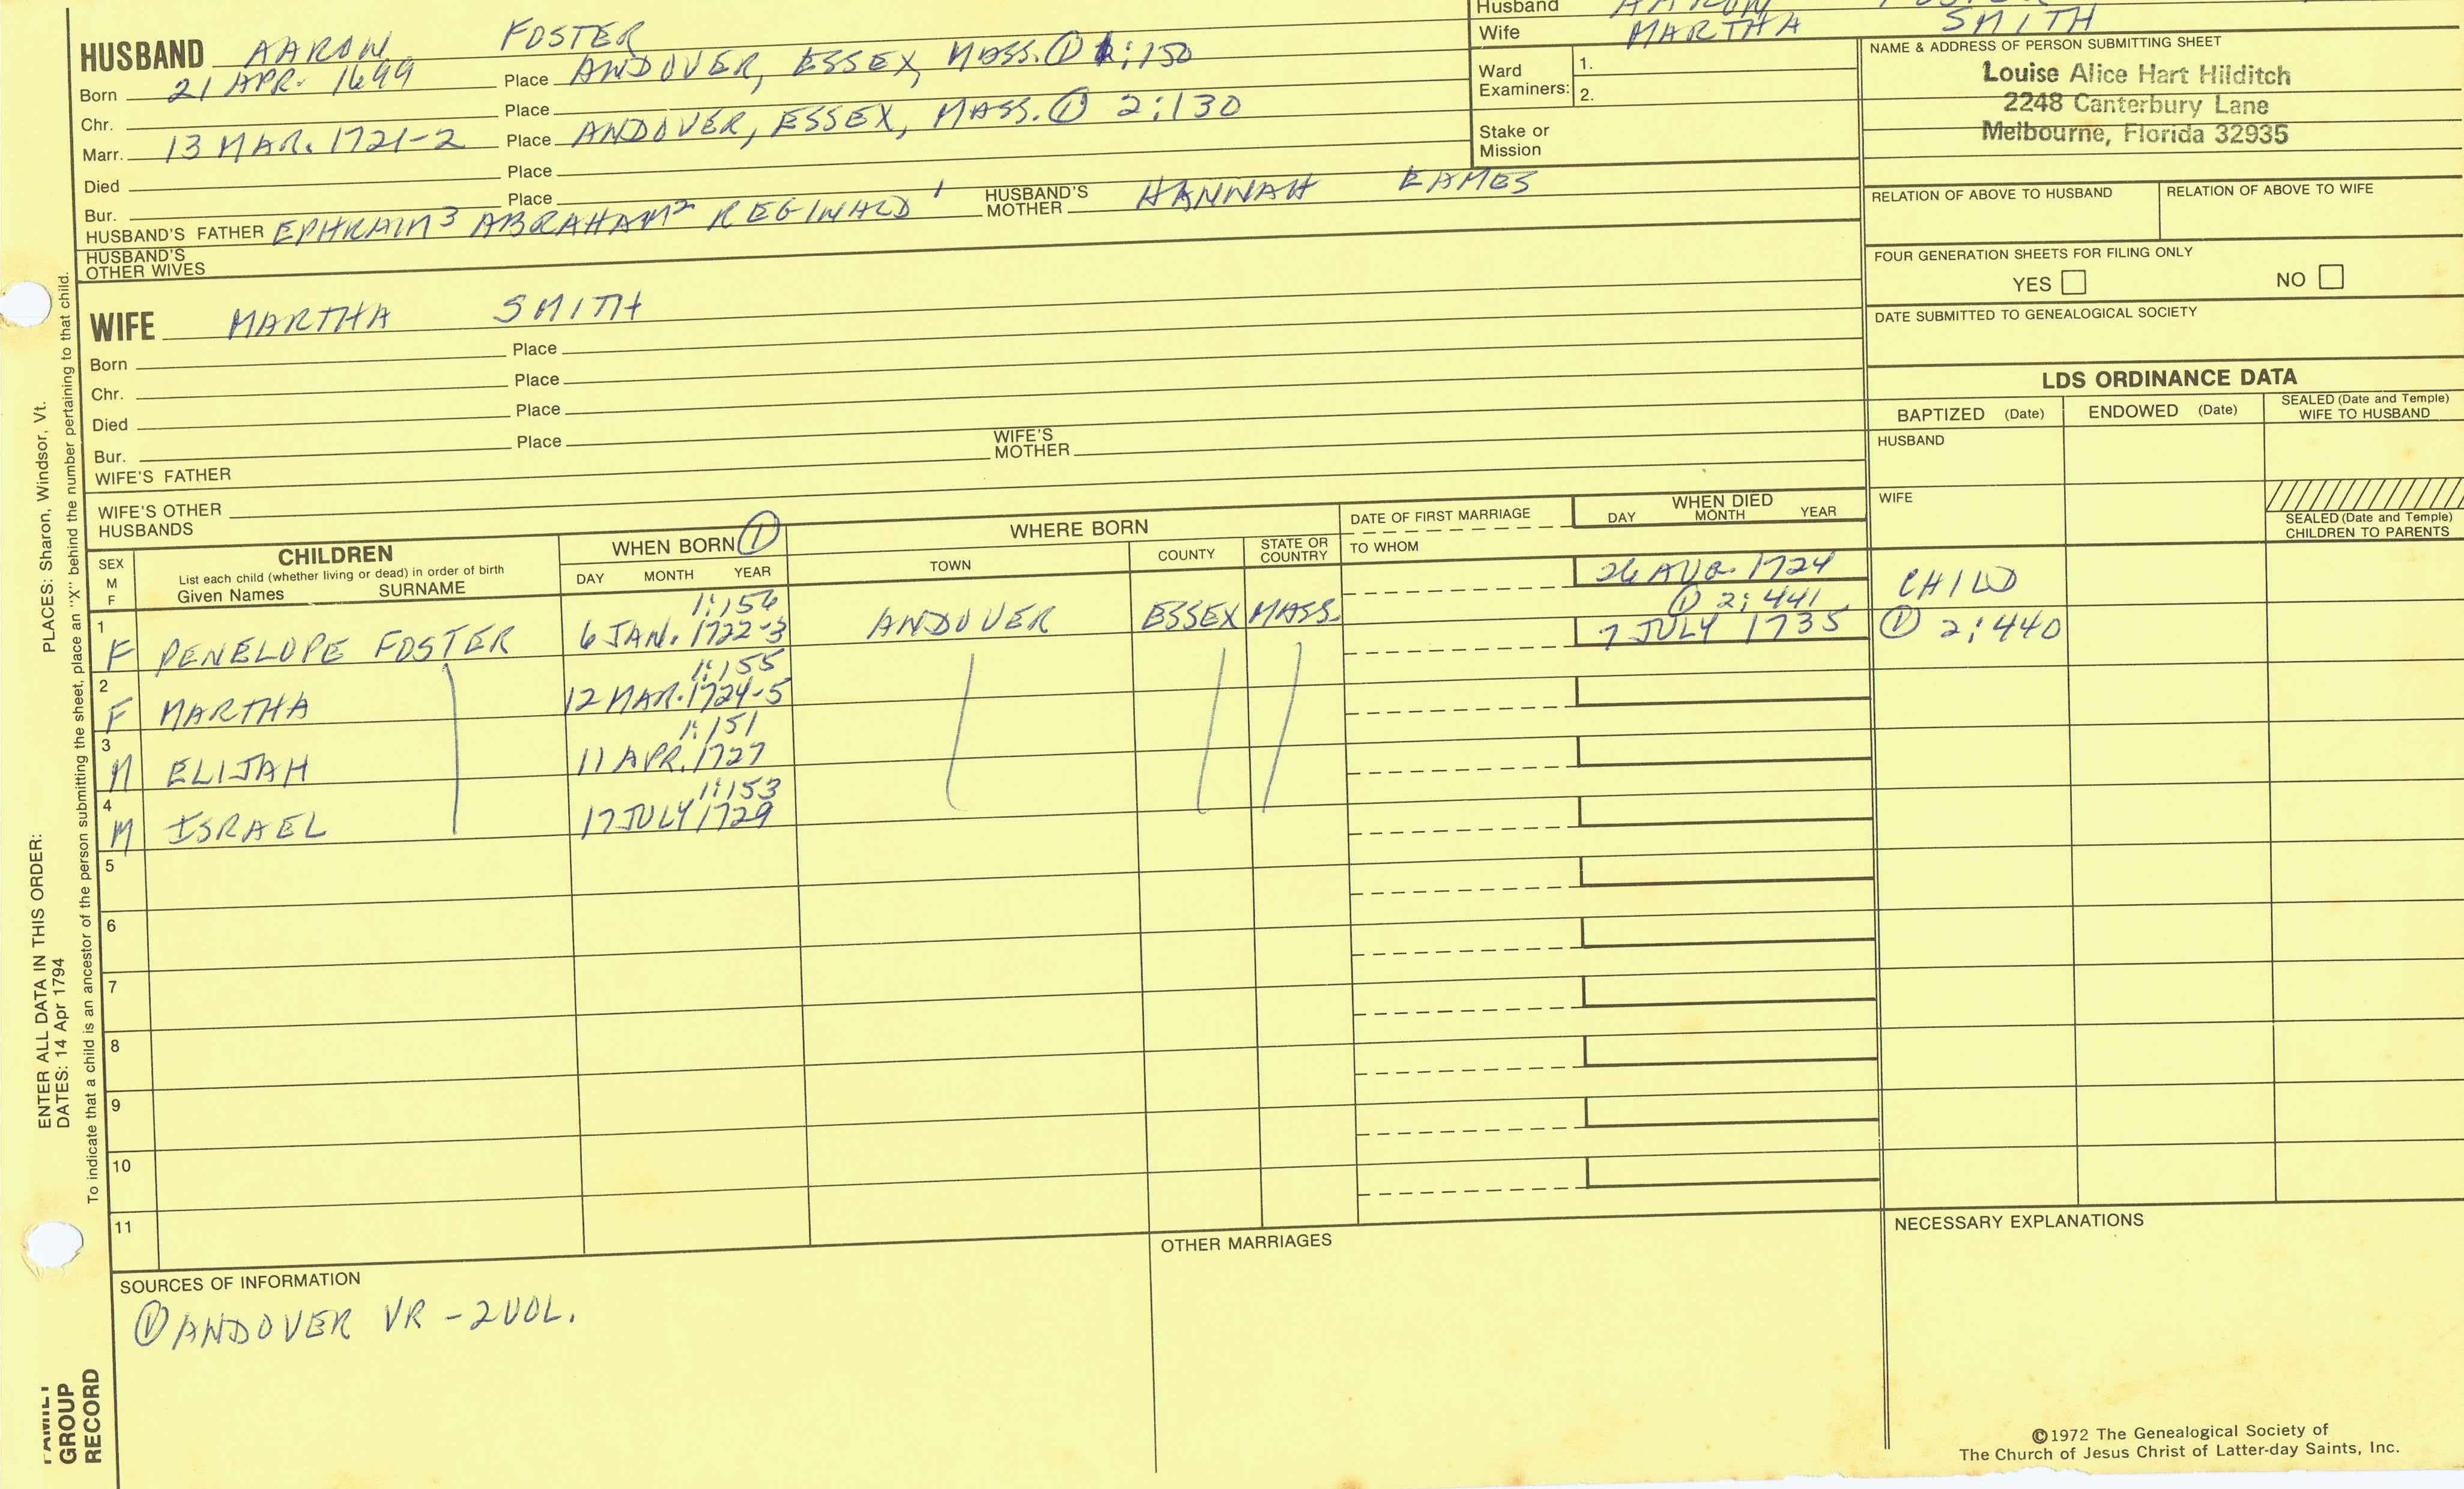 Husband AARON FOSTER
Wife MARTHA SMITH
HUSBAND AARON FOSTER
Born 21 APR. 1699 Place ANDOVER, ESSEX, MASS. ① 1:150
Chr. Place
Marr. 13 MAR. 1721-2 Place ANDOVER, ESSEX, MASS. ① 2:130
Died Place
Bur. Place
HUSBAND'S FATHER EPHRAIM³ ABRAHAM² REGINALD¹ HUSBAND'S MOTHER HANNAH EAMES
HUSBAND'S OTHER WIVES
Ward Examiners: 1.
2.
Stake or Mission
NAME & ADDRESS OF PERSON SUBMITTING SHEET
Louise Alice Hart Hilditch
2248 Canterbury Lane
Melbourne, Florida 32935
RELATION OF ABOVE TO HUSBAND RELATION OF ABOVE TO WIFE
FOUR GENERATION SHEETS FOR FILING ONLY
YES NO
DATE SUBMITTED TO GENEALOGICAL SOCIETY
WIFE MARTHA SMITH
Born Place
Chr. Place
Died Place
Bur. Place
WIFE'S FATHER WIFE'S MOTHER
WIFE'S OTHER HUSBANDS
LDS ORDINANCE DATA
BAPTIZED (Date) ENDOWED (Date) SEALED (Date and Temple) WIFE TO HUSBAND
HUSBAND
WIFE
SEALED (Date and Temple) CHILDREN TO PARENTS
SEX M F
CHILDREN
List each child (whether living or dead) in order of birth
Given Names SURNAME
WHEN BORN ①
DAY MONTH YEAR
WHERE BORN
TOWN COUNTY STATE OR COUNTRY
DATE OF FIRST MARRIAGE
TO WHOM
WHEN DIED
DAY MONTH YEAR
1:156 26 AUG. 1724 CHILD
1 F PENELOPE FOSTER 6 JAN. 1722-3 ANDOVER ESSEX MASS. ① 2:441
1:155 7 JULY 1735 ① 2:440
2 F MARTHA 12 MAR. 1724-5
1:151
3 M ELIJAH 11 APR. 1727
1:153
4 M ISRAEL 17 JULY 1729
5
6
7
8
9
10
11
SOURCES OF INFORMATION
① ANDOVER VR - 2 VOL.
OTHER MARRIAGES
NECESSARY EXPLANATIONS
©1972 The Genealogical Society of
The Church of Jesus Christ of Latter-day Saints, Inc.
ENTER ALL DATA IN THIS ORDER: PLACES: Sharon, Windsor, Vt.
DATES: 14 Apr 1794
To indicate that a child is an ancestor of the person submitting the sheet, place an "X" behind the number pertaining to that child.
FAMILY
GROUP
RECORD